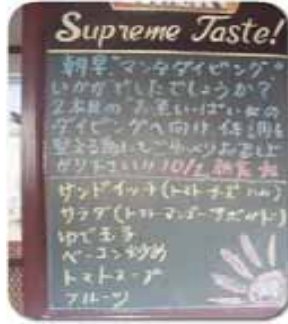 Supreme Taste!
朝早マンタダイビング
いかがでしたでしょうか?
2本目の お魚いっぱい
ダイビングへ向け 体調を
10/2
サンドイッチ(トマト チーズ ハム)
サラダ(トマト マンゴー アボカド)
ゆで玉子
ベーコン炒め
トマトスープ
フルーツ